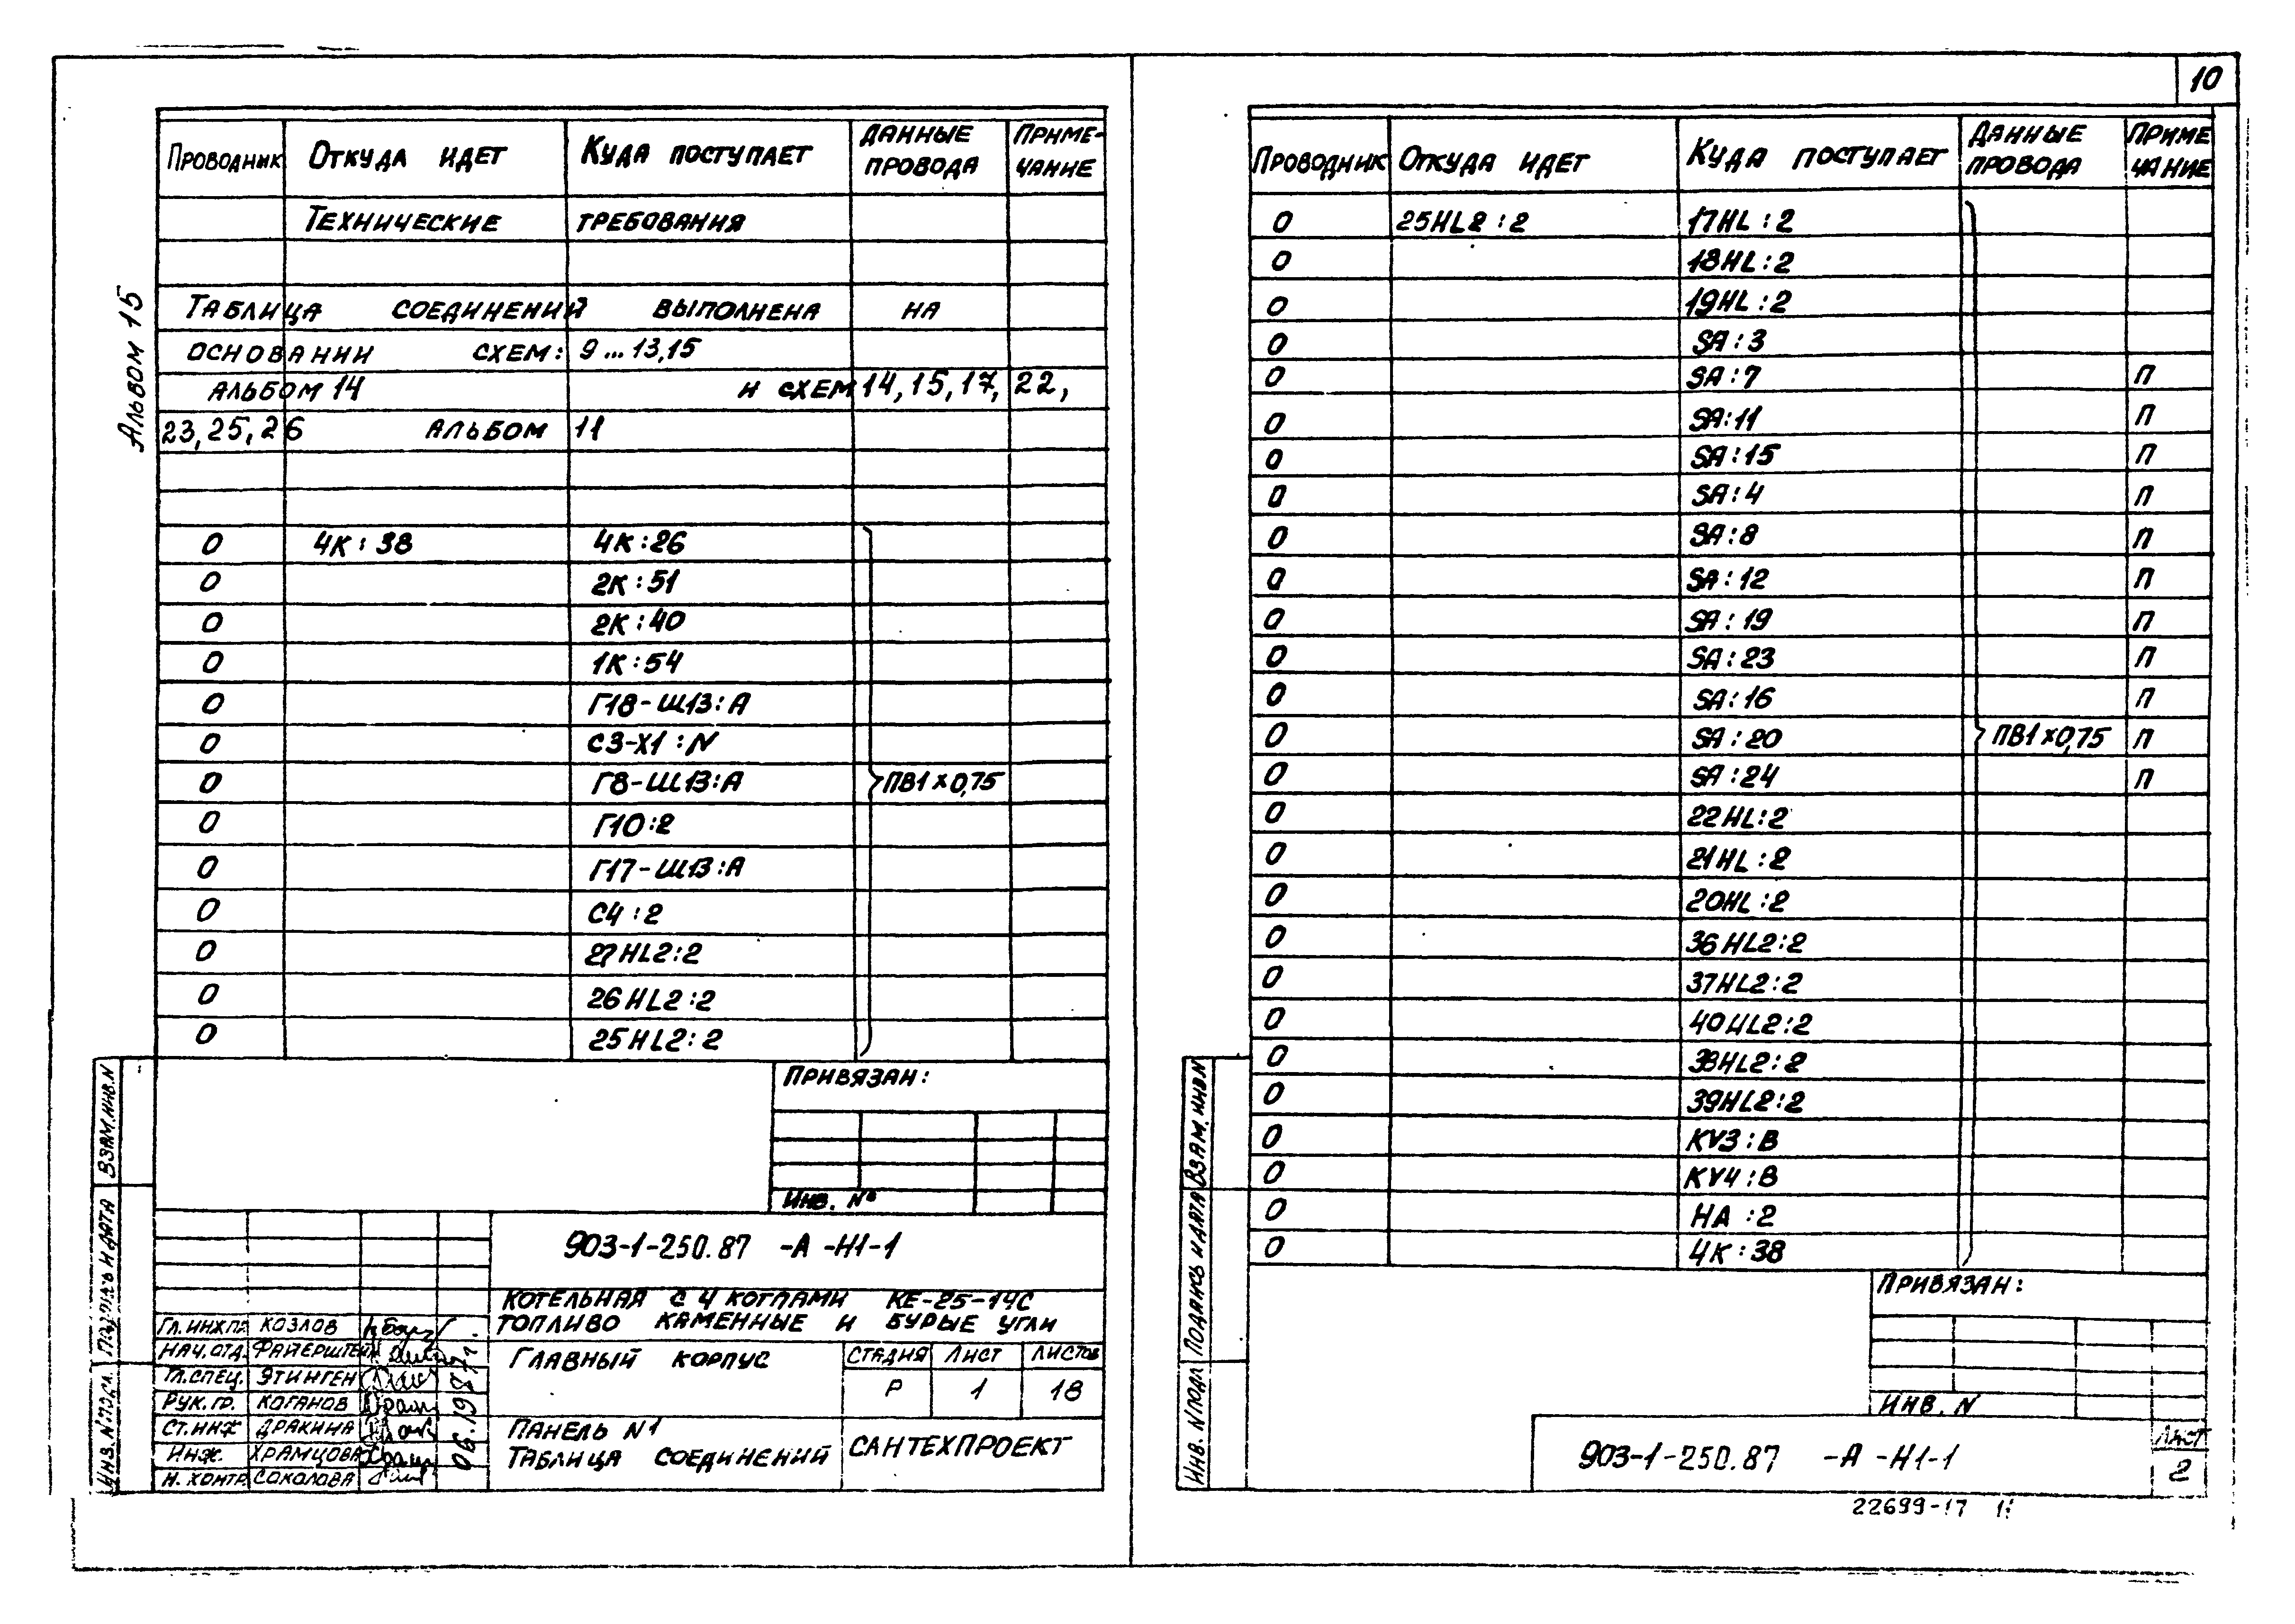 10
Альбом 15
Проводник Откуда идет Куда поступает Данные провода Примечание
Технические требования
Таблица соединений выполнена на
основании схем: 9...13,15
альбом 14 и схем 14, 15, 17, 22,
23, 25, 26 альбом 11
0 4К:38 4К:26
0 2К:51
0 2К:40
0 1К:54
0 Г18-Ш13:А
0 С3-Х1:N
0 Г8-Ш13:А ПВ1×0,75
0 Г10:2
0 Г17-Ш13:А
0 С4:2
0 27HL2:2
0 26HL2:2
0 25HL2:2
Привязан:
Инв. №
903-1-250.87 -А -Н1-1
Котельная с 4 котлами КЕ-25-14С
топливо каменные и бурые угли
Главный корпус
Стадия Лист Листов
Р 1 18
Панель N1
Таблица соединений
Сантехпроект
Гл.инж.пр. Козлов
Нач.отд. Файерштейн
Гл.спец. Этинген
Рук.гр. Коганов
Ст.инж Дракина
Инж. Храмцова
Н. контр. Соколова
06.1987г.
Инв. N подл. Подпись и дата Взам. инв. N
Проводник Откуда идет Куда поступает Данные провода Примечание
0 25HL2:2 17HL:2
0 18HL:2
0 19HL:2
0 SA:3
0 SA:7 П
0 SA:11 П
0 SA:15 П
0 SA:4 П
0 SA:8 П
0 SA:12 П
0 SA:19 П
0 SA:23 П
0 SA:16 П
0 SA:20 ПВ1×0,75 П
0 SA:24 П
0 22HL:2
0 21HL:2
0 20HL:2
0 36HL2:2
0 37HL2:2
0 40HL2:2
0 38HL2:2
0 39HL2:2
0 KV3:В
0 KV4:В
0 НА:2
0 4К:38
Привязан:
Инв. N
903-1-250.87 -А -Н1-1
Лист
2
Инв. N подл. Подпись и дата Взам. инв. N
22699-17